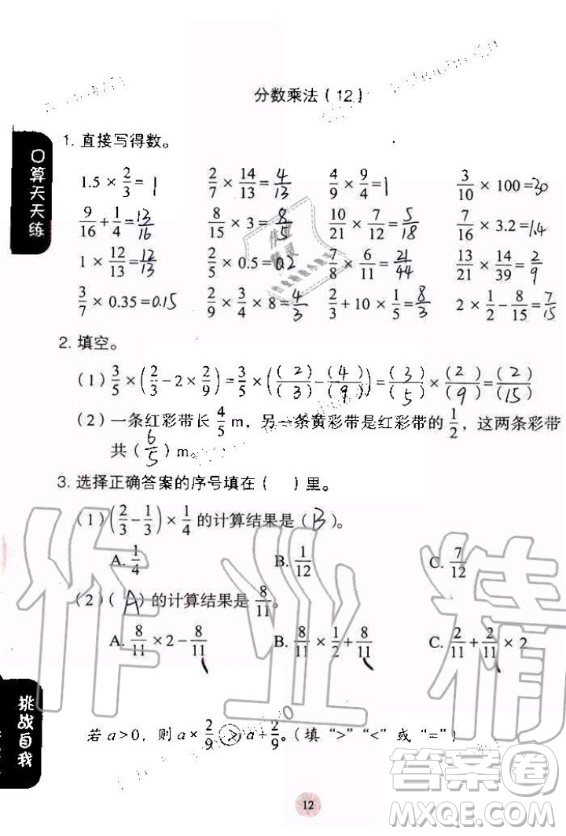 分数乘法(12)
口算天天练
1. 直接写得数。
1.5 × 2/3 = 1  2/7 × 14/13 = 4/13  4/9 × 9/4 = 1  3/10 × 100 = 30
9/16 + 1/4 = 13/16  8/15 × 3 = 8/5  10/21 × 7/12 = 5/18  7/16 × 3.2 = 1.4
1 × 12/13 = 12/13  2/5 × 0.5 = 0.2  7/8 × 6/11 = 21/44  13/21 × 14/39 = 2/9
3/7 × 0.35 = 0.15  2/9 × 3/4 × 8 = 4/3  2/3 + 10 × 1/5 = 8/3  2 × 1/2 − 8/15 = 7/15
2. 填空。
(1) 3/5 × (2/3 − 2 × 2/9) = 3/5 × ((2)/(3) − (4)/(9)) = (3)/(5) × (2)/(9) = (2)/(15)
(2) 一条红彩带长 4/5 m, 另一条黄彩带是红彩带的 1/2, 这两条彩带
共(6/5)m。
3. 选择正确答案的序号填在( )里。
(1) (2/3 − 1/3) × 1/4 的计算结果是(B)。
A. 1/4  B. 1/12  C. 7/12
(2) (A)的计算结果是 8/11。
A. 8/11 × 2 − 8/11  B. 8/11 × 1/2 + 8/11  C. 2/11 + 2/11 × 2
挑战自我
若 a>0, 则 a × 2/9 ○ a + 2/9。(填 “>” “<” 或 “=”)
12
作业精
答案圈
MXQE.COM